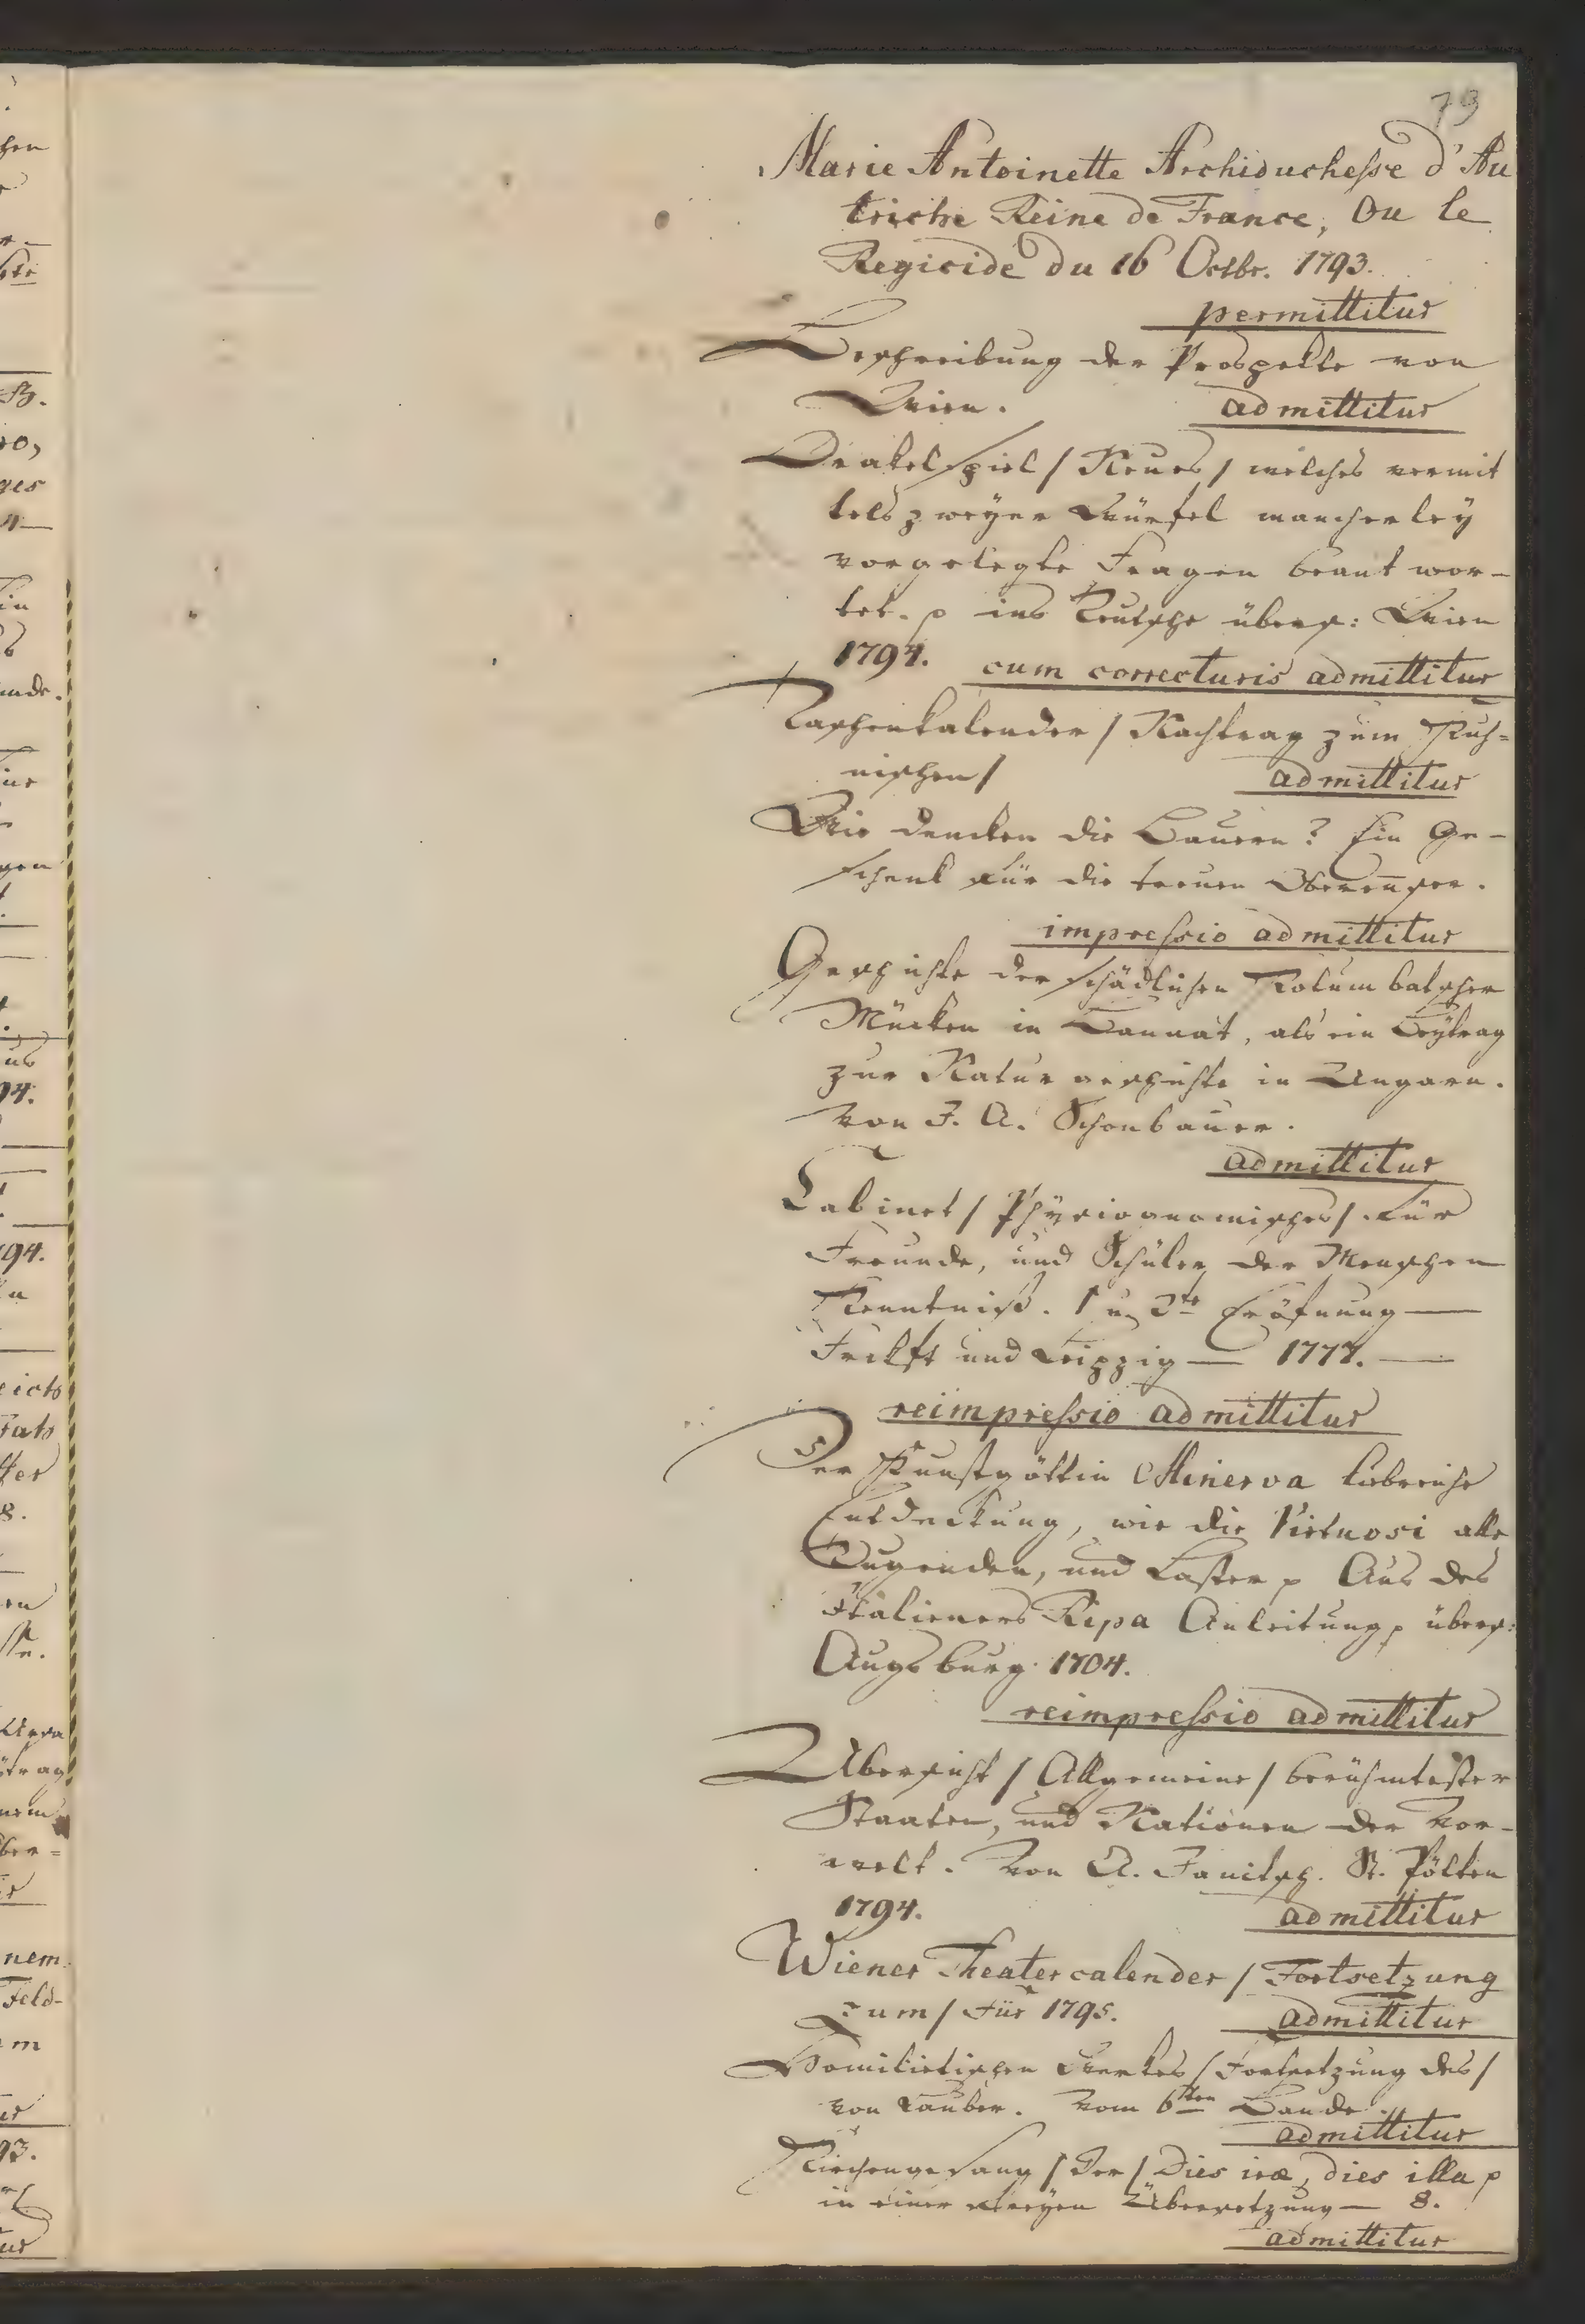 79
Marie Antoinette Archiduchesse d'Au
triche Reine de France, Ou le
Regicide du 16 Octbr. 1793.
permittitur
Beschreibung der Prospekte von
Wien. admittitur
Orakelspiel / Neues / welches vermit
tels zweyer Würfel mancherley
vorgelegte Fragen beant wor-
tet. p ins Teutsche übers: Wien
1794. cum correcturis admittitur
Taschenkalender / Nachtrag zum
nischen / admittitur
Wie dencken die Bauern? Ein Ge-
schenk für die treuen Oberennser.
impressio admittitur
Geschichte der schädlichen Kolumbatscher
Mücken in Bannat, als ein Beytrag
zur Naturgeschichte in Ungarn.
von J. A. Schonbauer.
admittitur
Cabinet / Physiognomisches / für
Freunde, und Schüler der Menschen
Kenntniß. 1 u 2te Eröfnung —
Frckft und Leipzig — 1777. —
reimpressio admittitur
Der Kunstgöttin Minerva liebreiche
Entdeckung, wie die Virtuosi alle
Tugenden, und Laster p Aus des
Italieners Ripa Anleitung p übers:
Augsburg. 1704.
reimpressio admittitur
Übersicht / Allgemeine / berühmtester
Staaten, und Nationen der Vor-
welt. Von A. Janitsch. St. Pölten
1794. admittitur
Wiener Theatercalender / Fortsetzung
zum / Für 1795. admittitur
Homiletischen Werkes / Fortsetzung des /
von Lauber. Vom 6ten Bande.
admittitur
Kirchengesang / Der / Dies iræ, dies illa p
in einer freyen Übersetzung — 8.
admittitur